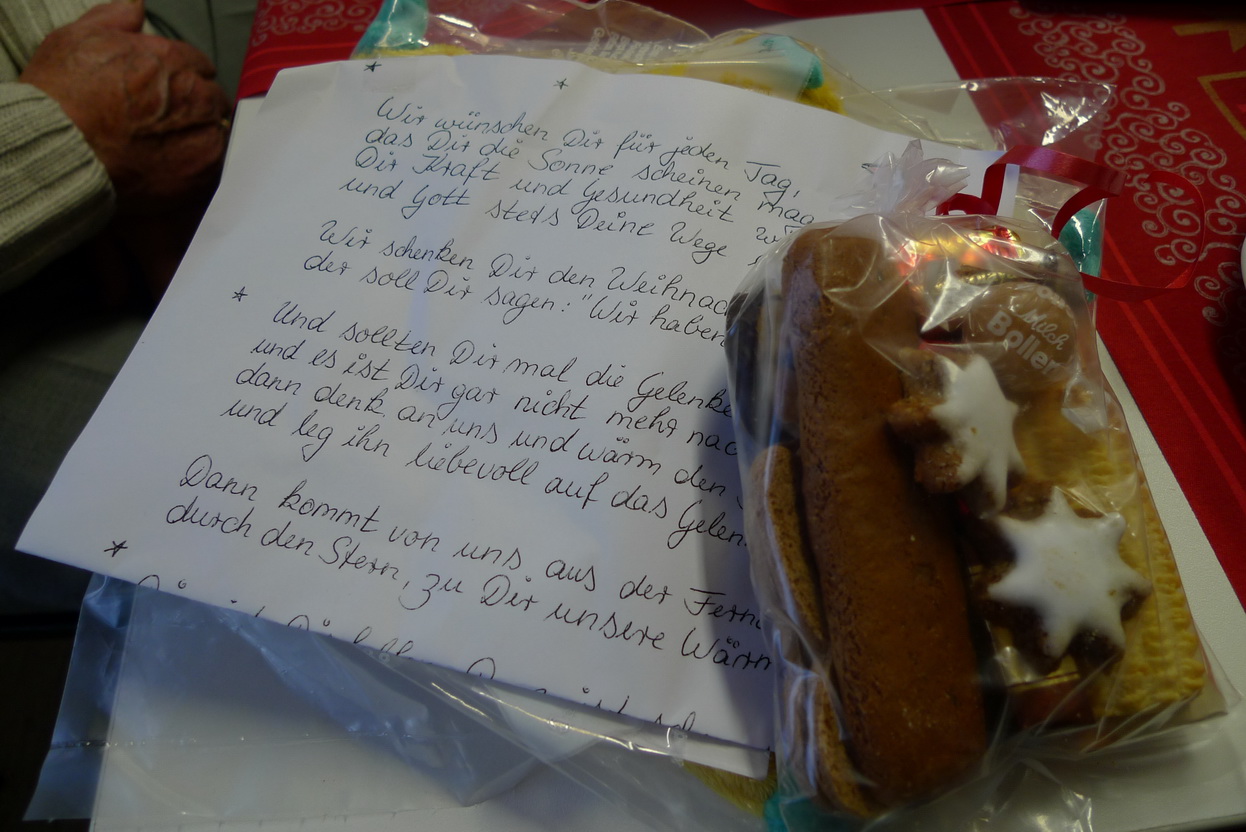 Wir wünschen Dir für jeden Tag,
das Dir die Sonne scheinen mag
Dir Kraft und Gesundheit
und Gott steds Deine Wege
Wir schenken Dir den Weihnac
der soll Dir sagen: "Wir haben
Und sollten Dir mal die Gelenke
und es ist Dir gar nicht mehr nac
dann denk an uns und wärm den
und leg ihn liebevoll auf das Gelen
Dann kommt von uns aus der Fern
durch den Stern, zu Dir unsere Wärm
Milch
Boller